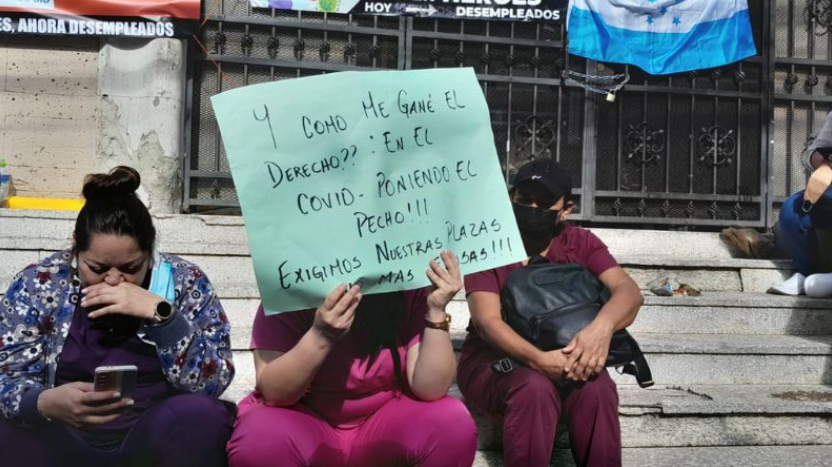 S, AHORA DESEMPLEADOS
HOY DESEMPLEADOS
ES, AHOR
Y COMO ME GANÉ EL
DERECHO?? : EN EL
COVID - PONIENDO EL
PECHO!!!
EXIGIMOS NUESTRAS PLAZAS
MAS SAS!!!